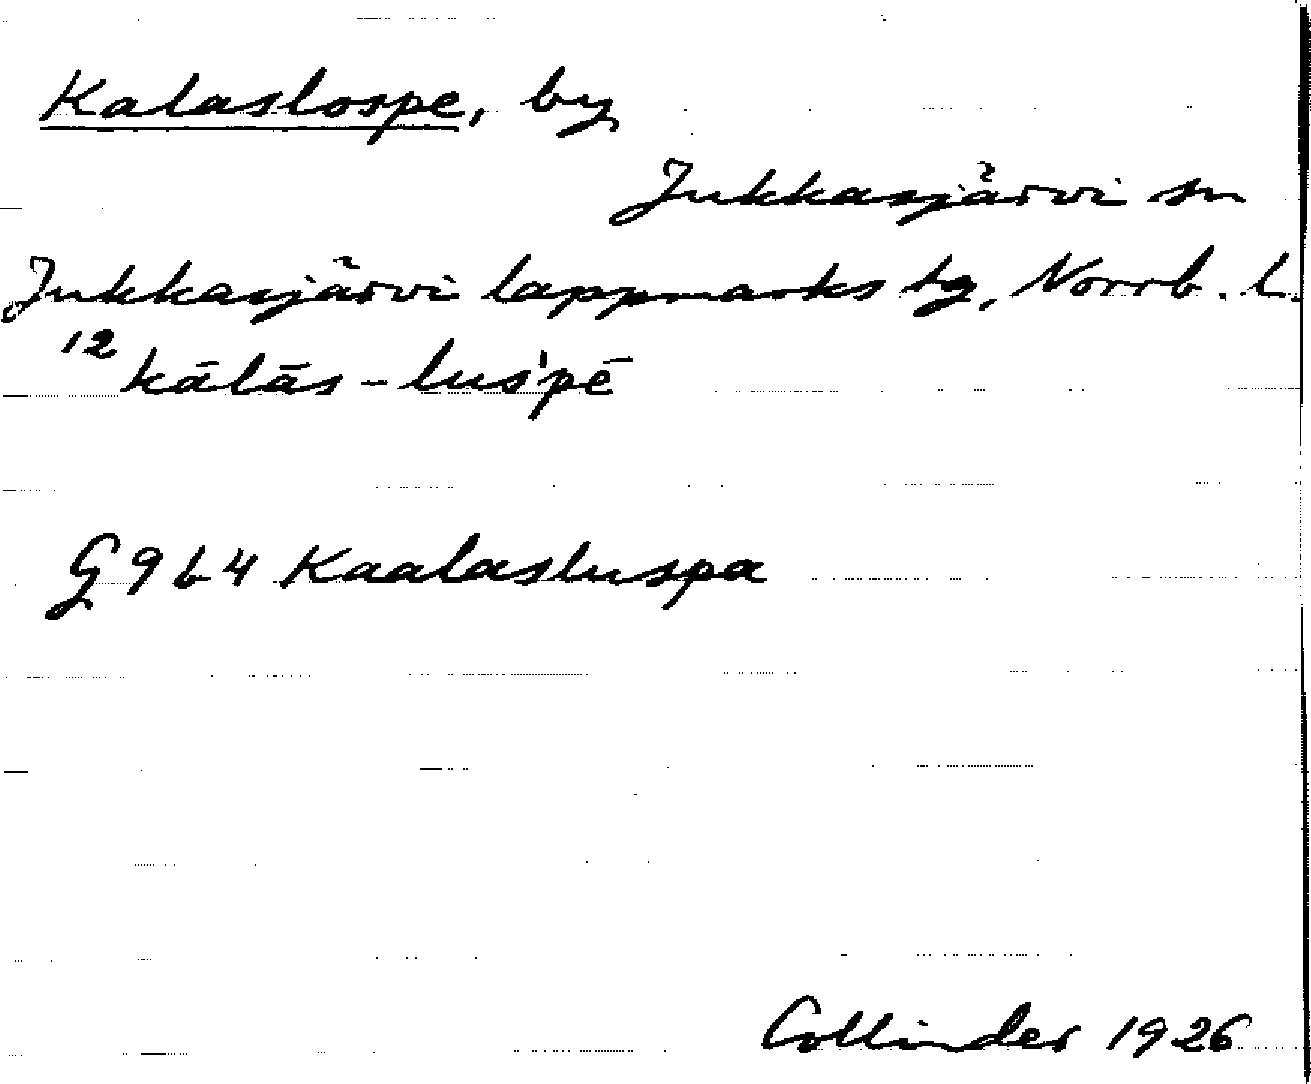 Kalaslospe, by
Jukkasjärvi sn
Jukkasjärvi lappmarks tg, Norrb. l.
12 kālās-lus'pē
G 9 b 4 Kaalasluspa
Collinder 1926